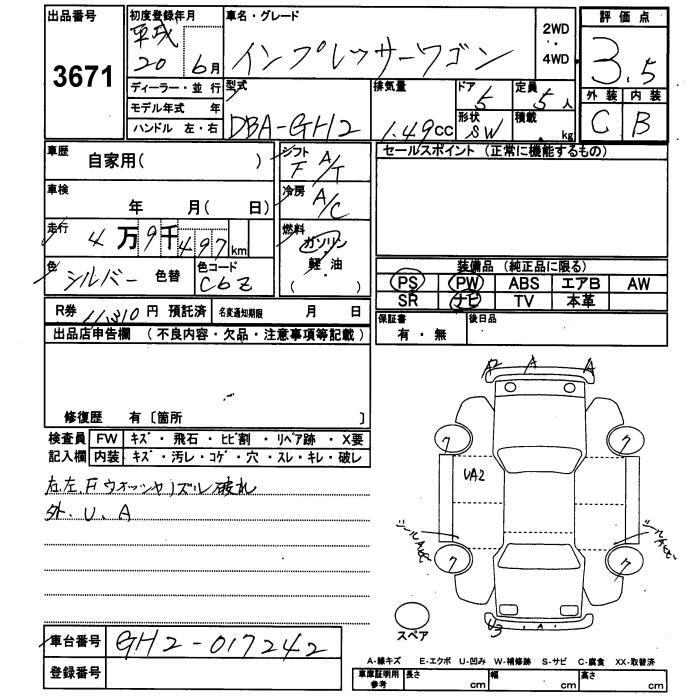 出品番号
3671
初度登録年月
平成
20 6月
車名・グレード
インプレッサーワゴン
2WD
・
4WD
評価点
3.5
ディーラー・並行
モデル年式 年
ハンドル 左・右
型式
DBA-GH2
排気量
1.49cc
ドア
5
定員
5人
形状
SW
積載
kg
外装 内装
C B
車歴
自家用( )
シフト
F A/T
セールスポイント (正常に機能するもの)
車検
年 月( 日)
冷房
A/C
走行
4万9千497km
燃料
ガソリン
軽・油
( )
色
シルバー 色替
色コード
C6Z
装備品 (純正品に限る)
PS PW ABS エアB AW
SR ナビ TV 本革
R券 円 預託済 名変通知期限 月 日
保証書
有・無
後日品
出品店申告欄 (不良内容・欠品・注意事項等記載)
修復歴 有〔箇所 〕
検査員
記入欄
FW キズ・飛石・ヒビ割・リペア跡・X要
内装 キズ・汚レ・コゲ・穴・スレ・キレ・破レ
右.左.Fウオッシャノズル破れ
外.U.A
A2 A A
ク ク
UA2
ク ク
U3 A
スペア
車台番号
GH2-017242
登録番号
A-線キズ E-エクボ U-凹み W-補修跡 S-サビ C-腐食 XX-取替済
車庫証明用
参考
長さ cm
幅 cm
高さ cm